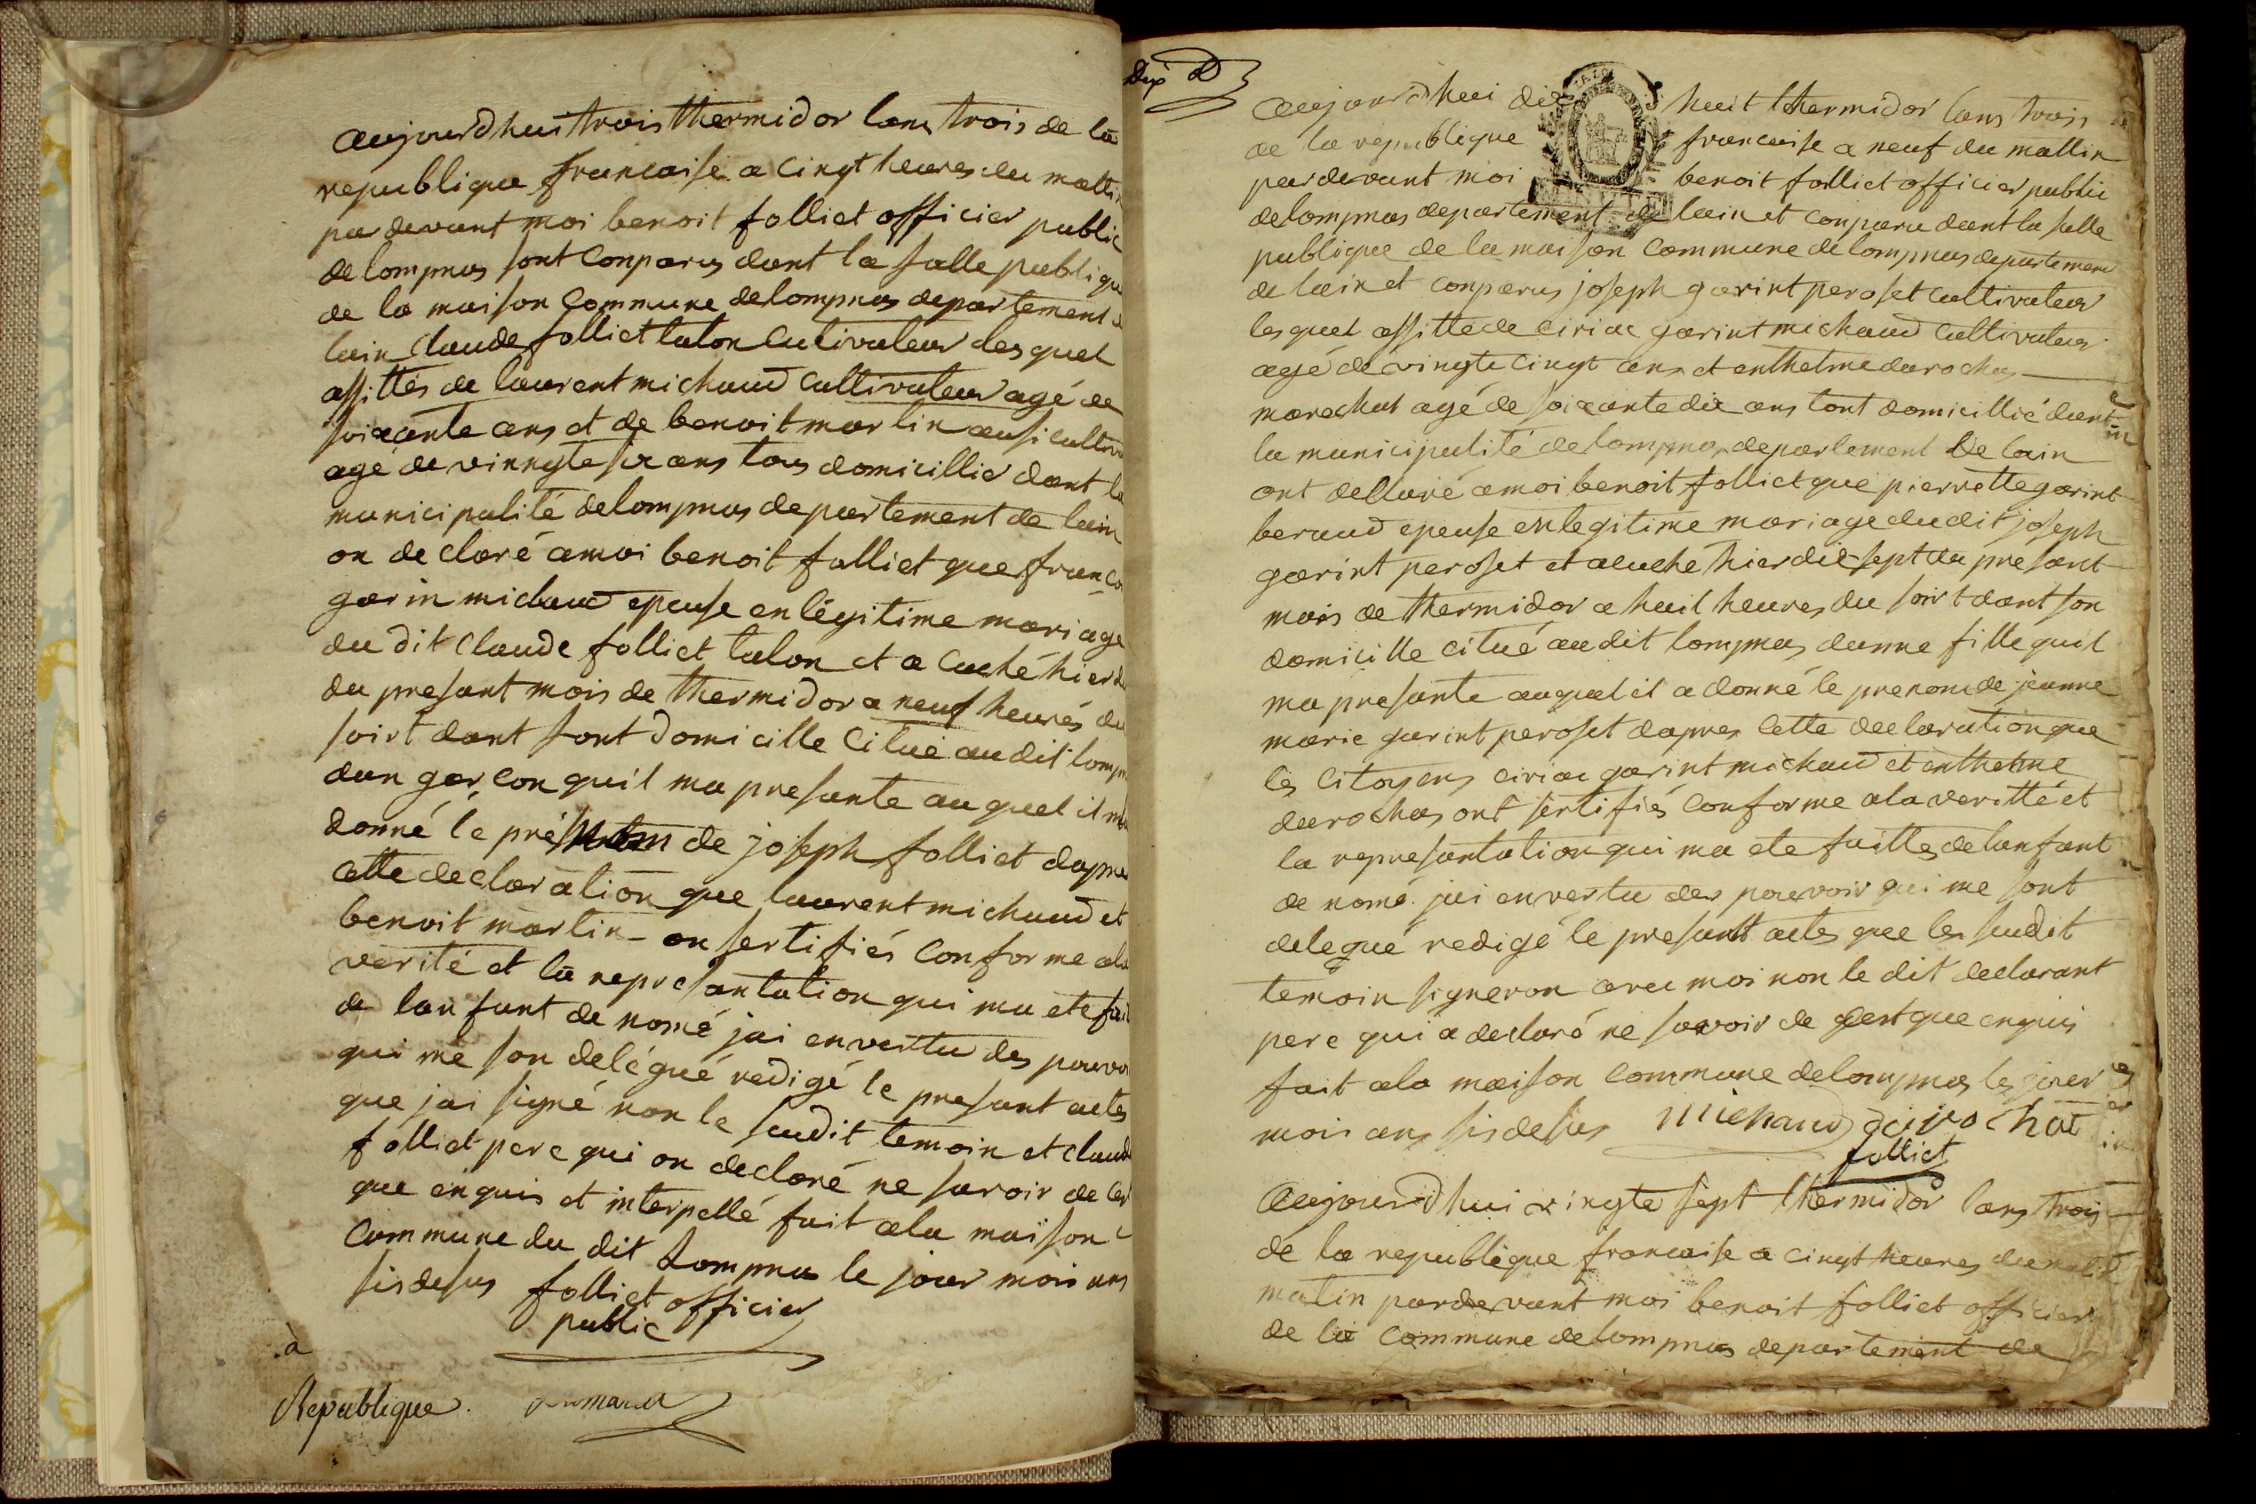 aujourdhui trois thermidor lans trois de la
republique francaise a cinqt heures du mattin
par devant moi benoit folliet officier public
delompnas sont conparus dant la salle publique
de la maison commune delompnas departement
lain claude folliet talon cultivateur lesquel
assittés de laurent michaud cultivateur agé de
soixante ans et de benoit martin ausi cultiva
agé de vinngte six ans tous domicillié dant la
municipalité delompnas departement de lain
on declaré amoi benoit folliet que franco
garin michaud epeuse en légitime mariage
du dit claude folliet talon et a cuché hier
du presant mois de thermidor a neuf heurés du
soirt dant sont domicille citué audit lompn
dun garcon quil ma presante auquel il
donné le de joseph folliet dapres
cette declaration que laurent michaud et
benoit martin on sertifiés conforme ala
verité et la representation qui ma ete fai
de lanfant de nomé jai en vertu des pouvo
qui me son delégué redigé le presant actes
que jai signé non le sudit temoin et claud
folliet pere qui on declaré ne savoir de ces
que enquis et interpellé fait ala maison
commune du dit Lompnas le jour mois ans
sisdesus folliet officier
public
à
République
Dup D
aujourdhui dix huit thermidor lans trois
de la republique francaise a neuf du mattin
par devant moi benoit folliet officier public
delompnas departement de lain et conparu dant la salle
publique de la maison commune delompnas departement
de lain et conparus joseph garint peroset cultivateur
lesquel assitte de ciriac garint michaud cultivateur
agé de vingte cinqt ans et enthelme durochas
marechal agé de soixante dix ans tont domicillié dant
la municipalité delompnas departement De lain
ont dellaré amoi benoit folliet que pierrette garint
beraud epeuse en legitime mariage dudit joseph
garint peroset et acuche hier dix sept du presant
mois de thermidor a huit heures du soirt dant son
domicille citué audit lompnas dunne fille quil
ma presante auquel il a donné le prenom de jeanne
marie garint peroset dapres cette declaration que
les citoyens ciriac garint michaud et enthelme
durochas ont sertifiés conforme ala veritté et
la representation qui ma ete faittes delanfant
de nomé jai en vertu des pouvoir qui me sont
delegué redigé le presantt actes que les sudit
temoin signeron avec moi non le dit declarant
pere qui a declaré ne savoir de que enquis
fait ala maison commune delompnas les jour
mois ans sisdesus Michaud durochat
folliet
aujourdhui vingte sept thermidor lans trois
de la republique francaise a cinqt heures du
matin pardevant moi benoit folliet officier
de la commune delompnas departement de